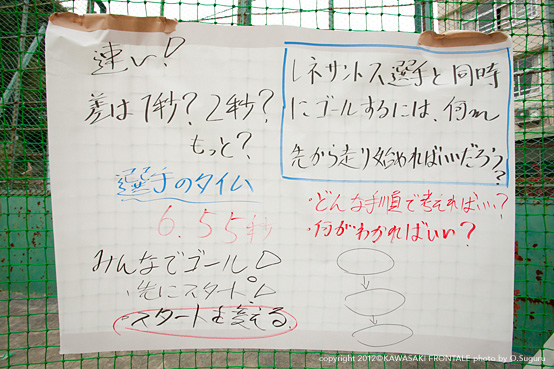 速い!
差は1秒?2秒?
もっと?
選手のタイム
6.55秒
みんなでゴール!
・先にスタート!
・スタートを変える。
レネサントス選手と同時
にゴールするには、何m
先から走り始めればいいだろう?
・どんな手順で考えればいい?
・何がわかればいい?
copyright 2012©KAWASAKI FRONTALE photo by O.Suguru